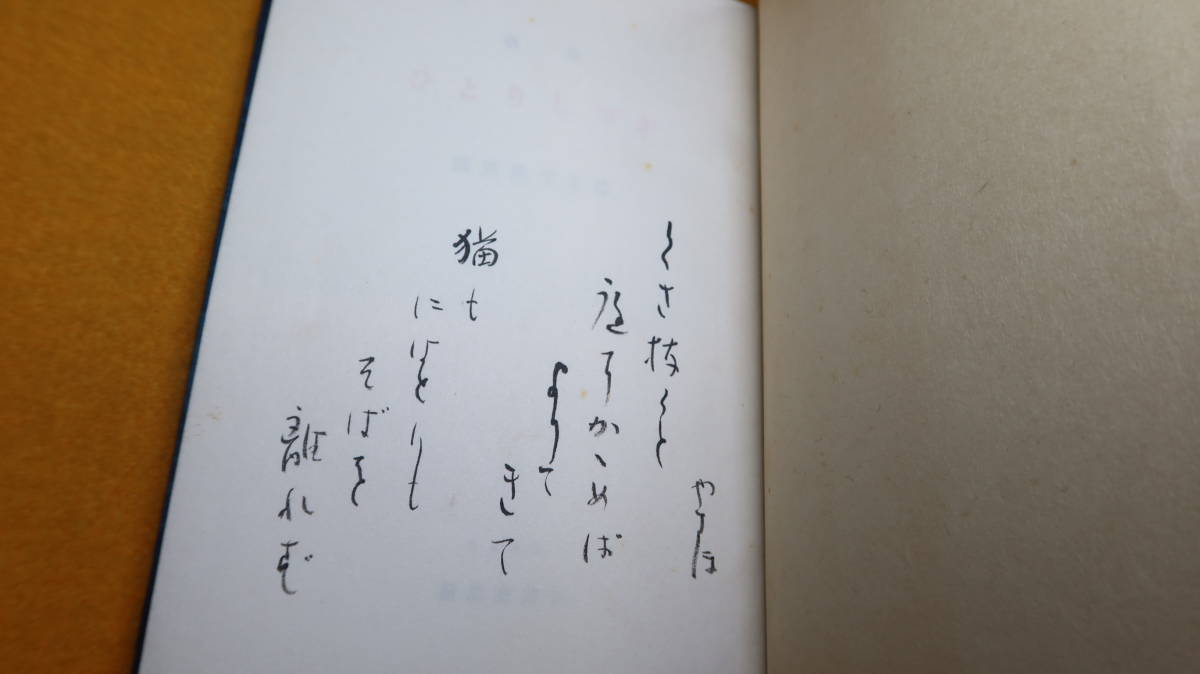 くさ抜くと
庭にかゝめば
よりて
きて
猫も
にはとりも
そばを
離れず